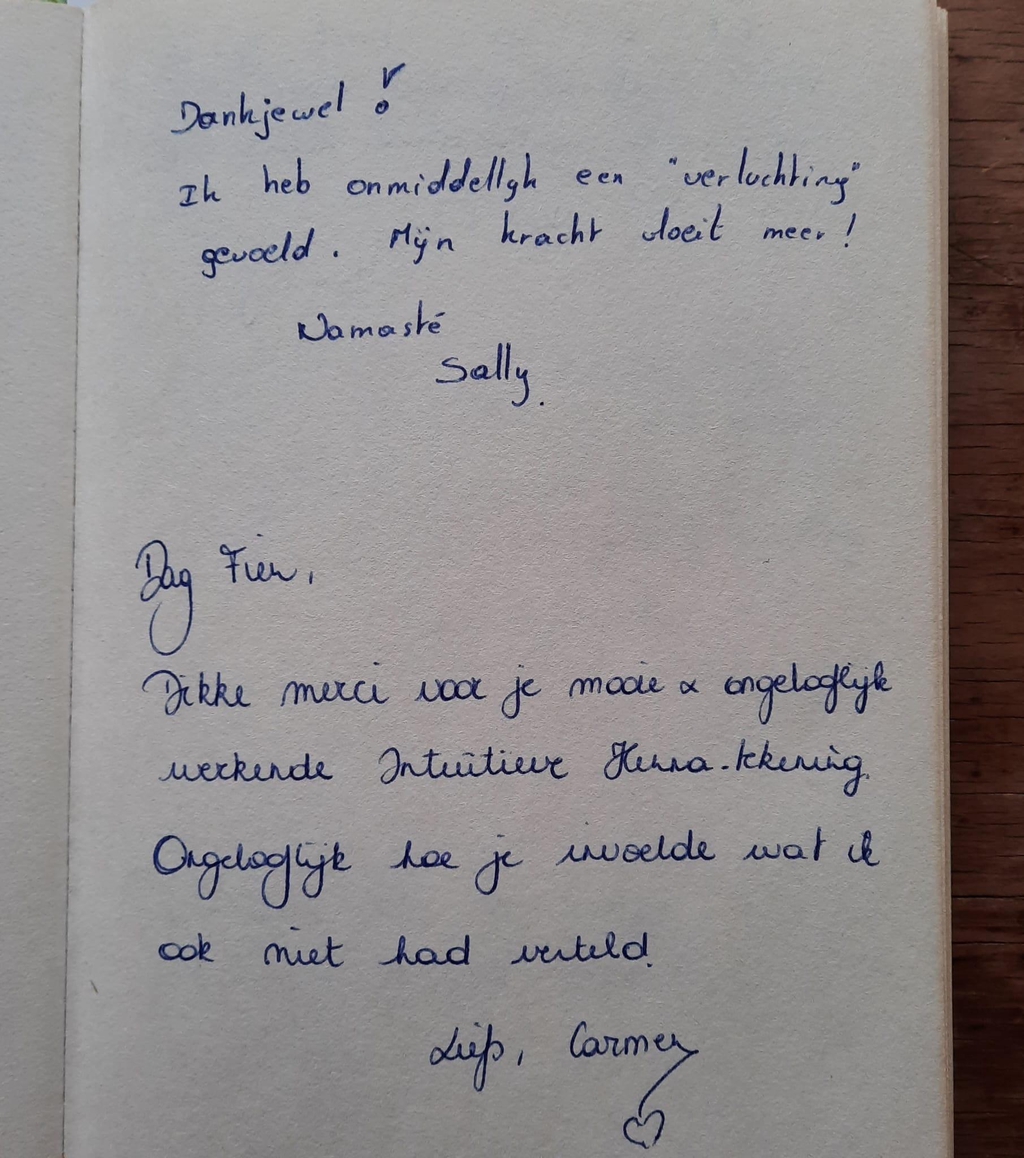 Dankjewel !
Ik heb onmiddellyk een "verluchting"
gevoeld. Mijn kracht vloeit meer!
Namasté
Sally.
Dag Fien,
Dikke merci voor je mooie & ongelooflijk
werkende Intuïtieve Henna-tekening.
Ongelooflijk hoe je invoelde wat ik
ook niet had verteld.
Liefs, Carmen